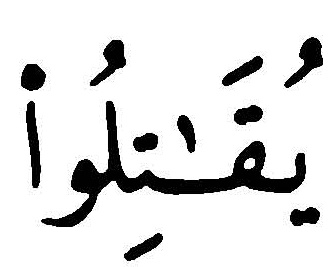 يُقَـٰتِلُوا۟